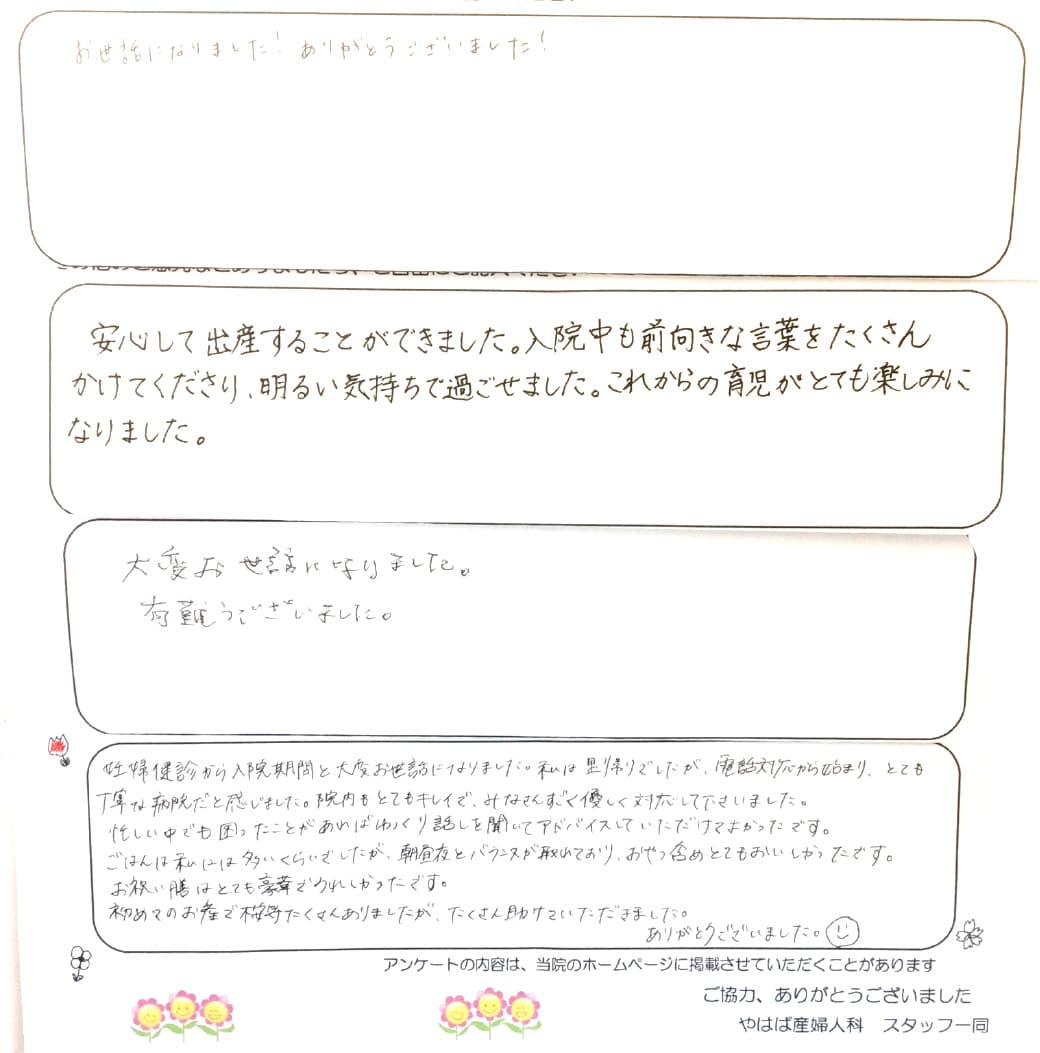 お世話になりました!ありがとうございました!
その他のご意見などありましたら、ご自由にご記入ください。
安心して出産することができました。入院中も前向きな言葉をたくさん
かけてくださり、明るい気持ちで過ごせました。これからの育児がとても楽しみに
なりました。
大変お世話になりました。
有難うございました。
妊婦健診から入院期間と大変お世話になりました。私は里帰りでしたが、電話対応から始まり、とても
丁寧な病院だと感じました。院内もとてもキレイで、みなさんすごく優しく対応して下さいました。
忙しい中でも困ったことがあればゆっくり話しを聞いてアドバイスしていただけてよかったです。
ごはんは私には多いくらいでしたが、朝昼夜とバランスが取れており、おやつ含めとてもおいしかったです。
お祝い膳はとても豪華でうれしかったです。
初めてのお産でたくさんありましたが、たくさん助けていただきました。
ありがとうございました。
アンケートの内容は、当院のホームページに掲載させていただくことがあります
ご協力、ありがとうございました
やはば産婦人科 スタッフ一同